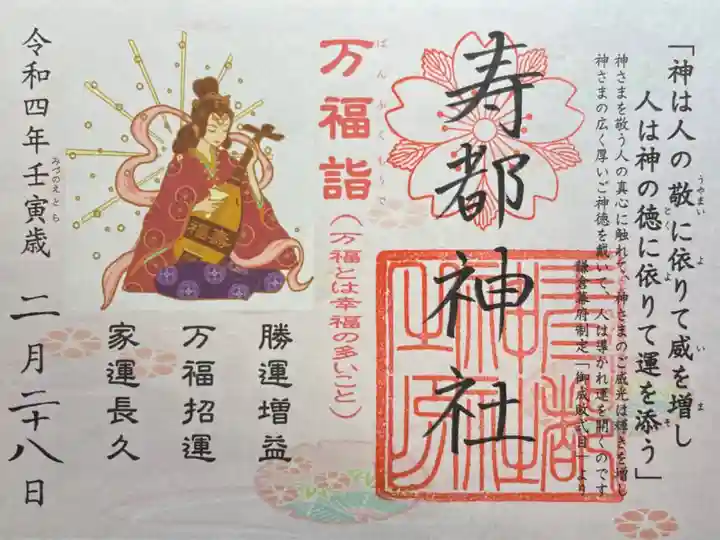 「神は人の敬に依りて威を増し
人は神の徳に依りて運を添う」
神さまを敬う人の真心に触れて、神さまのご威光は輝きを増し
神さまの広く厚いご神徳を戴いて、人は導かれ運を開くのです
鎌倉幕府制定「御成敗式目」より
寿都神社
万福詣
ばんぷくもうで
(万福とは幸福の多いこと)
勝運増益
万福招運
家運長久
令和四年壬寅歳
みづのえとら
二月二十八日